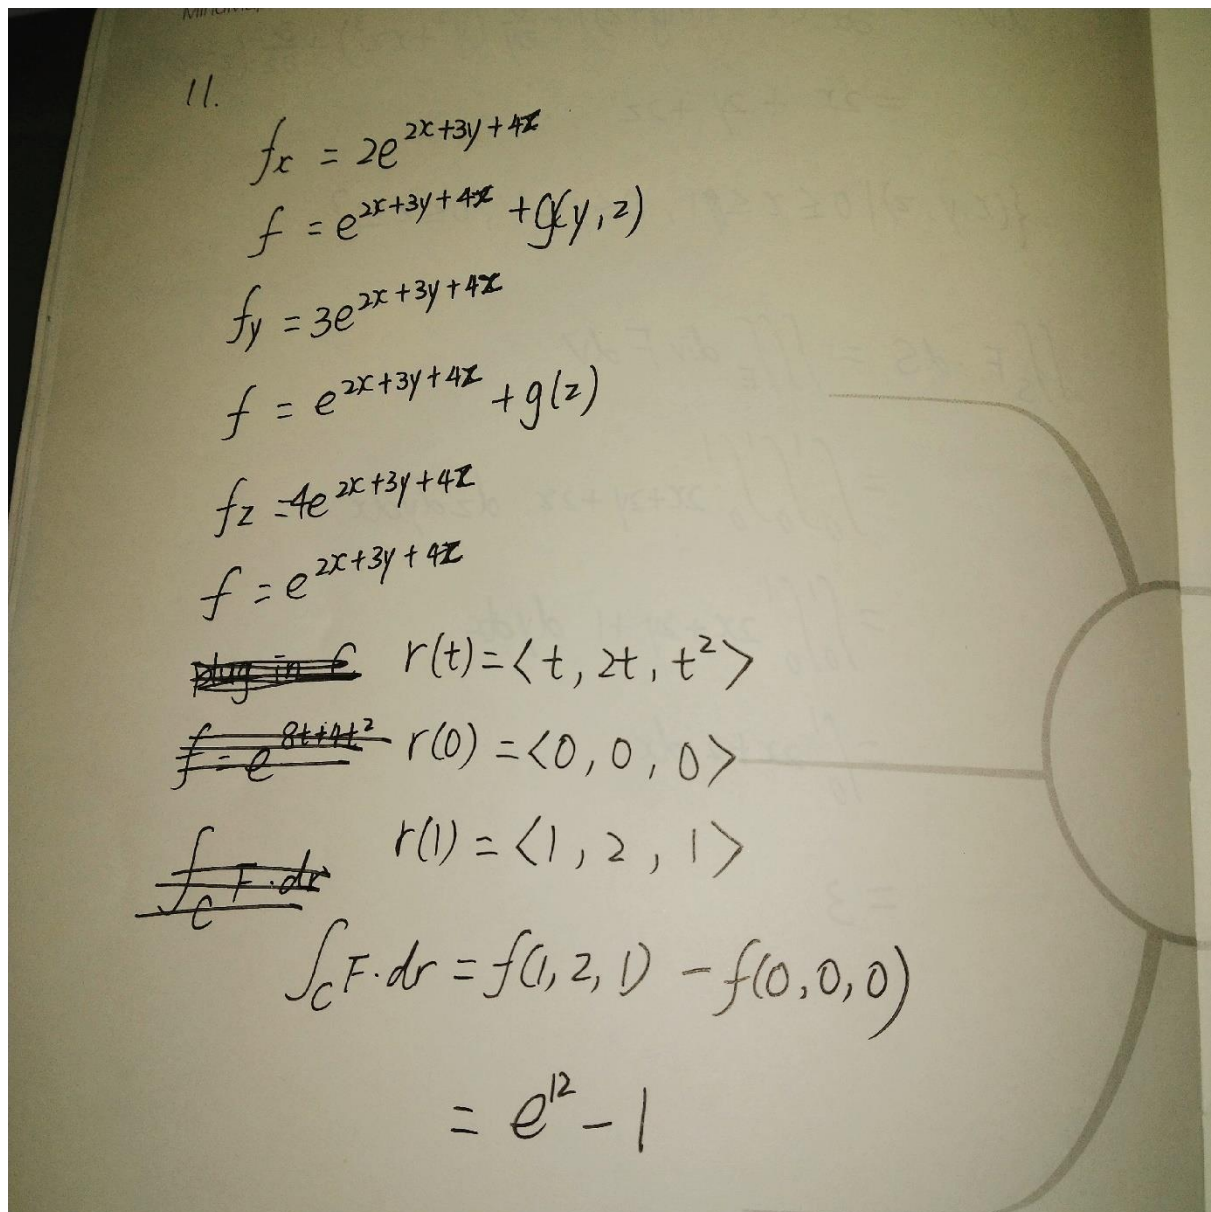 11.
fx = 2e^{2x+3y+4z}
f = e^{2x+3y+4z} + g(y,z)
fy = 3e^{2x+3y+4z}
f = e^{2x+3y+4z} + g(z)
fz = 4e^{2x+3y+4z}
f = e^{2x+3y+4z}
plug in r(t) = <t, 2t, t²>
f = e^{8t+4t²} r(0) = <0, 0, 0>
∫_C F·dr r(1) = <1, 2, 1>
∫_C F·dr = f(1,2,1) - f(0,0,0)
= e^{12} - 1